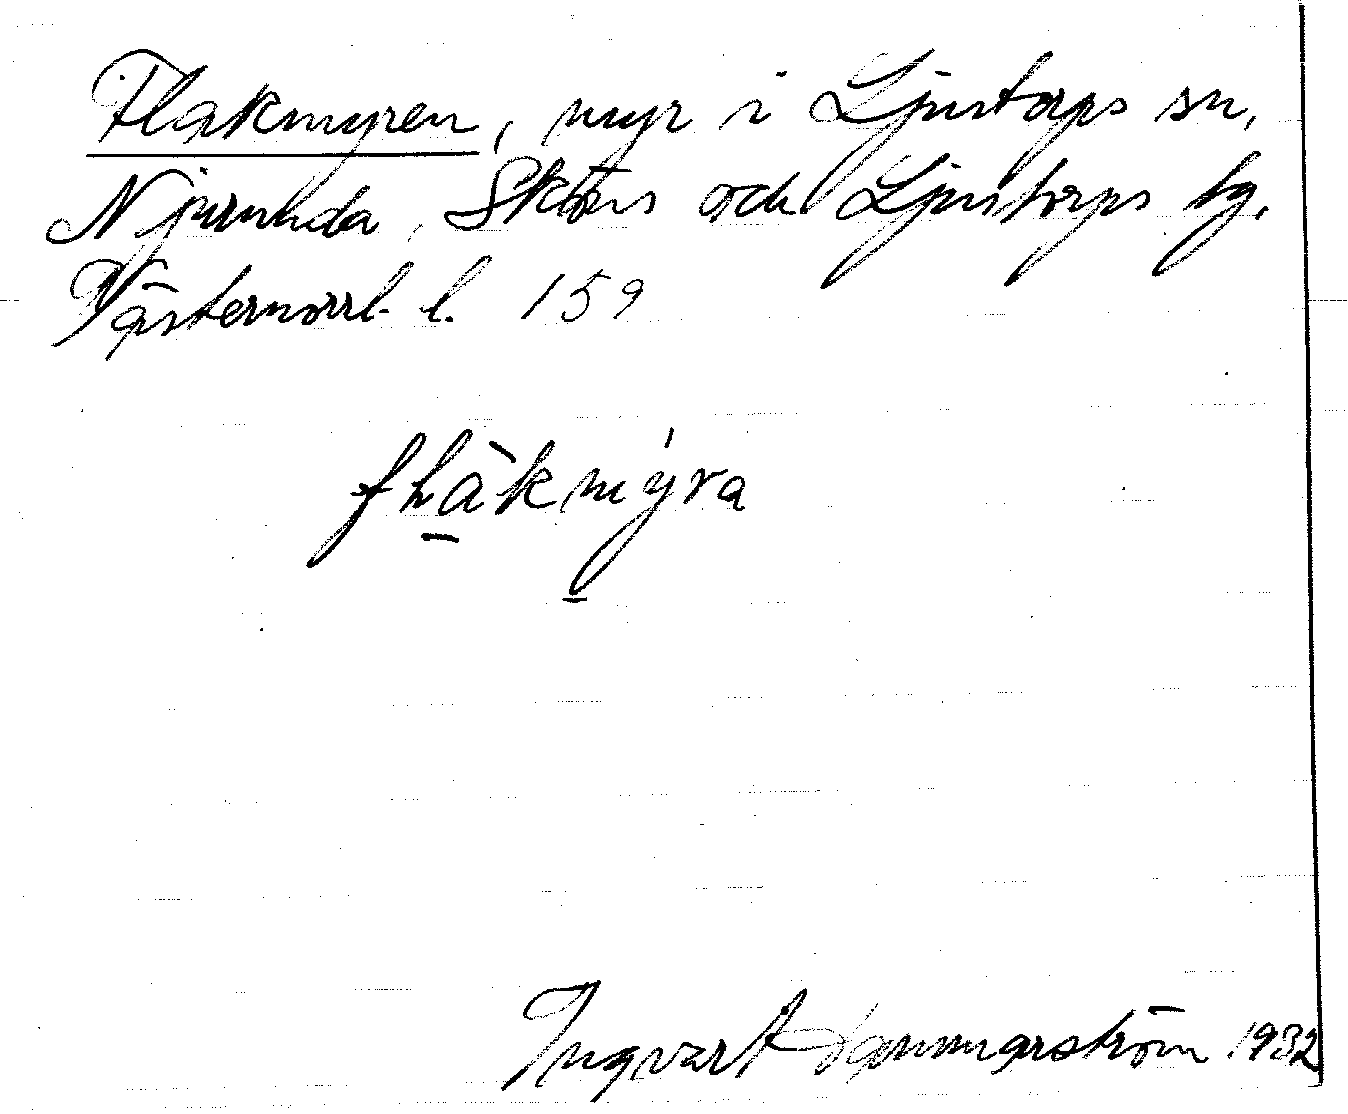 Flakmyren, myr i Ljustorps sn,
Njurunda, Sköns och Ljustorps tg.
Västernorrl. l. 159
fḻàkmý̱ra
Ingvart Hammarström 1932